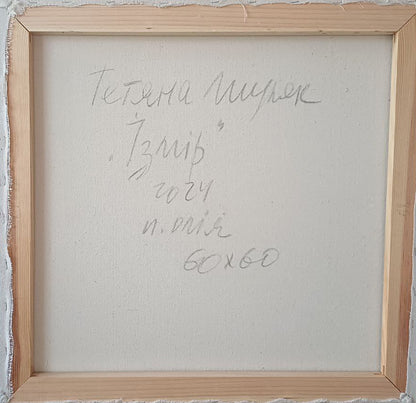 Тетяна
"Ізмір"
2024
п. олія
60х60